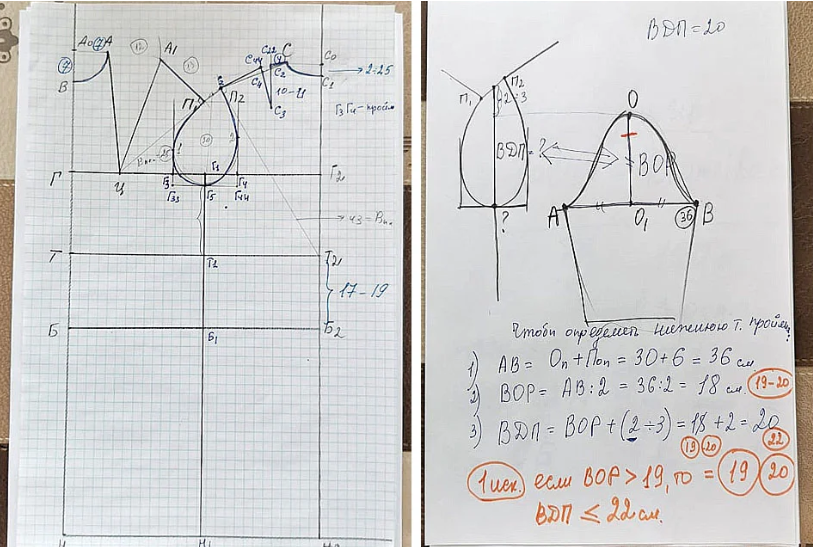 A₀ ⑦ A
12
A₁
13
C₄₄
C₂₂
C
C₀
⑦
C₄
C₂
C₁ → 2-25
B
П₁
П₂
10-11
C₃
Г₃Г₄ - пройм
Г
Ц
Г₁
Г₃
Г₄
Г₂
Г₃₃
Г₅
Г₄₄
43 = Вп.
Т
Т₁
Т₂
17-19
Б
Б₁
Б₂
Н₁
ВДП = 20
П₁
П₂
2÷3
О
ВДП = ?
ВОР
?
А
О₁
36
В
Чтобы определить нижнюю т. проймы:
1) АВ = Оп + Поп = 30 + 6 = 36 см.
2) ВОР = АВ : 2 = 36 : 2 = 18 см. 19-20
3) ВДП = ВОР + (2 ÷ 3) = 18 + 2 = 20
19 20 22
1 иск. если ВОР > 19, то = 19 20
ВДП ≤ 22 см.